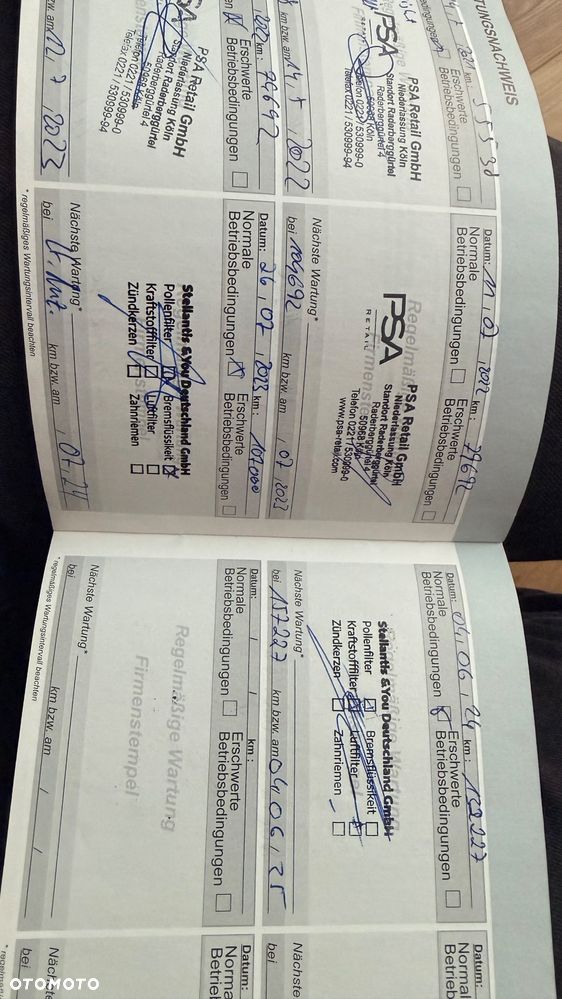 RTUNGSNACHWEIS
km :
Erschwerte
Betriebsbedingungen
PSA
PSA Retail GmbH
Niederlassung Köln
Standort Raderberggürtel
Raderberggürtel 4
50968 Köln
Telefon 0221/530999-0
Telefax 0221/530999-94
km bzw. am 14. 7. 2022
km: 79692
Erschwerte
Betriebsbedingungen
PSA Retail GmbH
Niederlassung Köln
Standort Raderberggürtel
Raderberggürtel 4
50968 Köln
Telefon 0221/530999-0
Telefax 0221/530999-94
bzw. am 12, 7, 2023
Datum: 11, 07, 2022 km: 79692
Normale Betriebsbedingungen
Erschwerte Betriebsbedingungen
PSA
RETAIL
PSA Retail GmbH
Niederlassung Köln
Standort Raderberggürtel
Raderberggürtel 4
50968 Köln
Telefon 0221/530999-0
www.psa-retail.com
Nächste Wartung*
bei 109692 km bzw. am , 07, 2023
Datum: 26, 07, 2023 km: 107000
Normale Betriebsbedingungen
Erschwerte Betriebsbedingungen
Stellantis &You Deutschland GmbH
Pollenfilter Bremsflüssikeit
Kraftstofffilter Luftfilter
Zündkerzen Zahnriemen
Nächste Wartung*
bei km bzw. am , 07, 24
* regelmäßiges Wartungsintervall beachten
Datum: 04, 06, 24 km:
Normale Betriebsbedingungen
Erschwerte Betriebsbedingungen
Stellantis &You Deutschland GmbH
Pollenfilter Bremsflüssikeit
Kraftstofffilter Luftfilter
Zündkerzen Zahnriemen
Nächste Wartung*
bei 157227 km bzw. am 04, 06, 25
Datum: / / km :
Normale Betriebsbedingungen
Erschwerte Betriebsbedingungen
Regelmäßige Wartung
Firmenstempel
Nächste Wartung*
bei km bzw. am / /
* regelmäßiges Wartungsintervall beachten
Datum:
Datum:
OTOMOTO